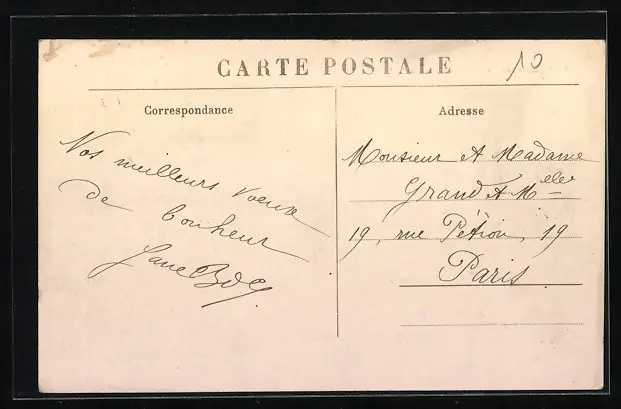 CARTE POSTALE
10
Correspondance
Nos meilleurs voeux
de bonheur
Adresse
Monsieur et Madame
Grand et Melle
19, rue Pétion, 19
Paris